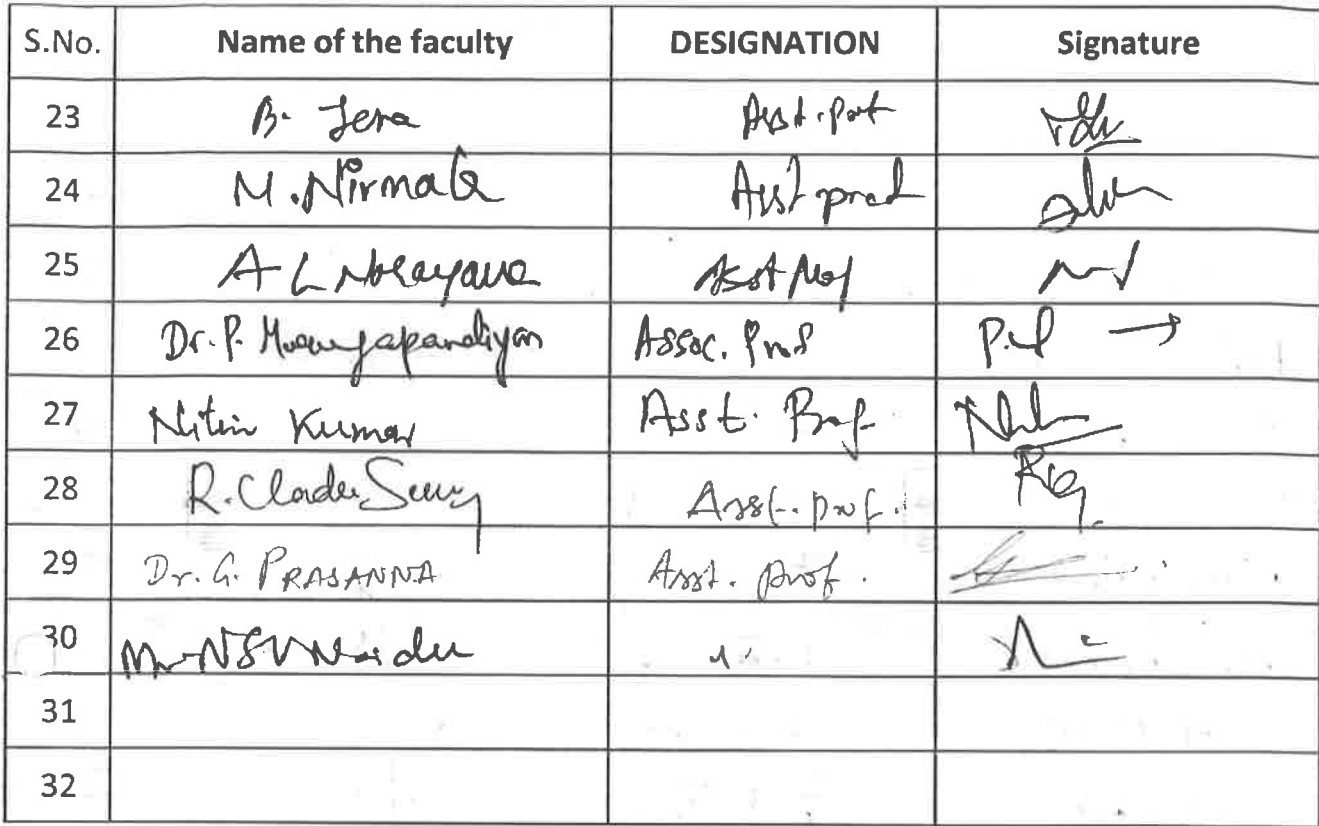 S.No. Name of the faculty DESIGNATION Signature
23 B. Jena Asst. Prof
24 M. Nirmala Asst prof
25 A L Narayana Asst Prof
26 Dr. P. Assoc. Prof
27 Nitin Kumar Asst. Prof
28 R. Asst. prof.
29 Dr. G. PRASANNA Asst. prof.
30 Mr NSV Naidu
31
32